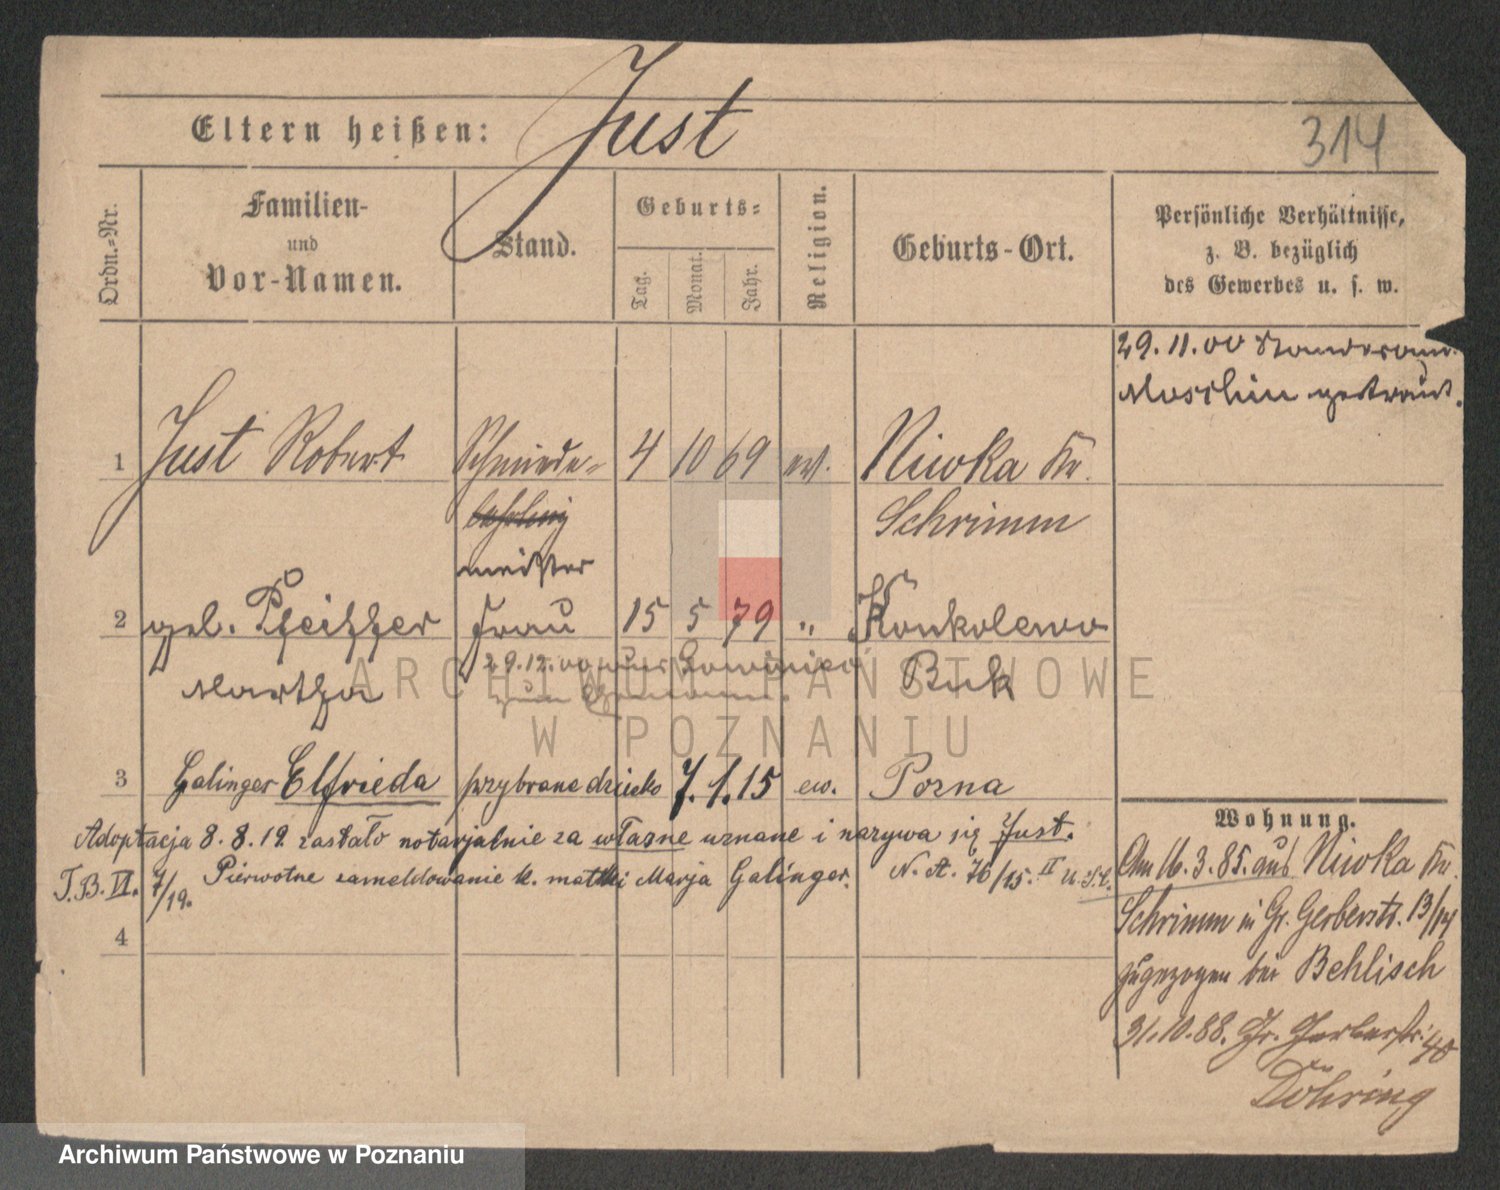 Eltern heißen: Just
314
Ordn.-Nr.
Familien-
und
Vor-Namen.
Stand.
Geburts-
Tag.
Monat.
Jahr.
Religion.
Geburts-Ort.
Persönliche Verhältnisse,
z. B. bezüglich
des Gewerbes u. s. w.
29.11.00 Standesamt
Moschin getraut.
1 Just Robert Schmiede- 4 10 69 ev. Niwka Kr.
lehrling Schrimm
meister
2 geb. Pfeiffer Frau 15 5 79 " Konkolewo
Martha Buk
29.12.00 aus
zum
3 Galinger Elfrieda przybrane dziecko 7. 1. 15 ew. Pozna
Adoptacja 8. 8. 19. zastało notarjalnie za własne uznane i nazywa się Just.
T.B. VI. 7/19. Pierwotne zameldowanie k. matki Marja Galinger. N. A. 76/15. II
4
Wohnung.
Am 16.3.85. aus Niwka Kr.
Schrimm in Gr. Gerberstr. 13/14
zugezogen bei Behlisch
31.10.88. Gr. Gerberstr. 40
Döhring
ARCHIWUM PAŃSTWOWE
W POZNANIU
Archiwum Państwowe w Poznaniu